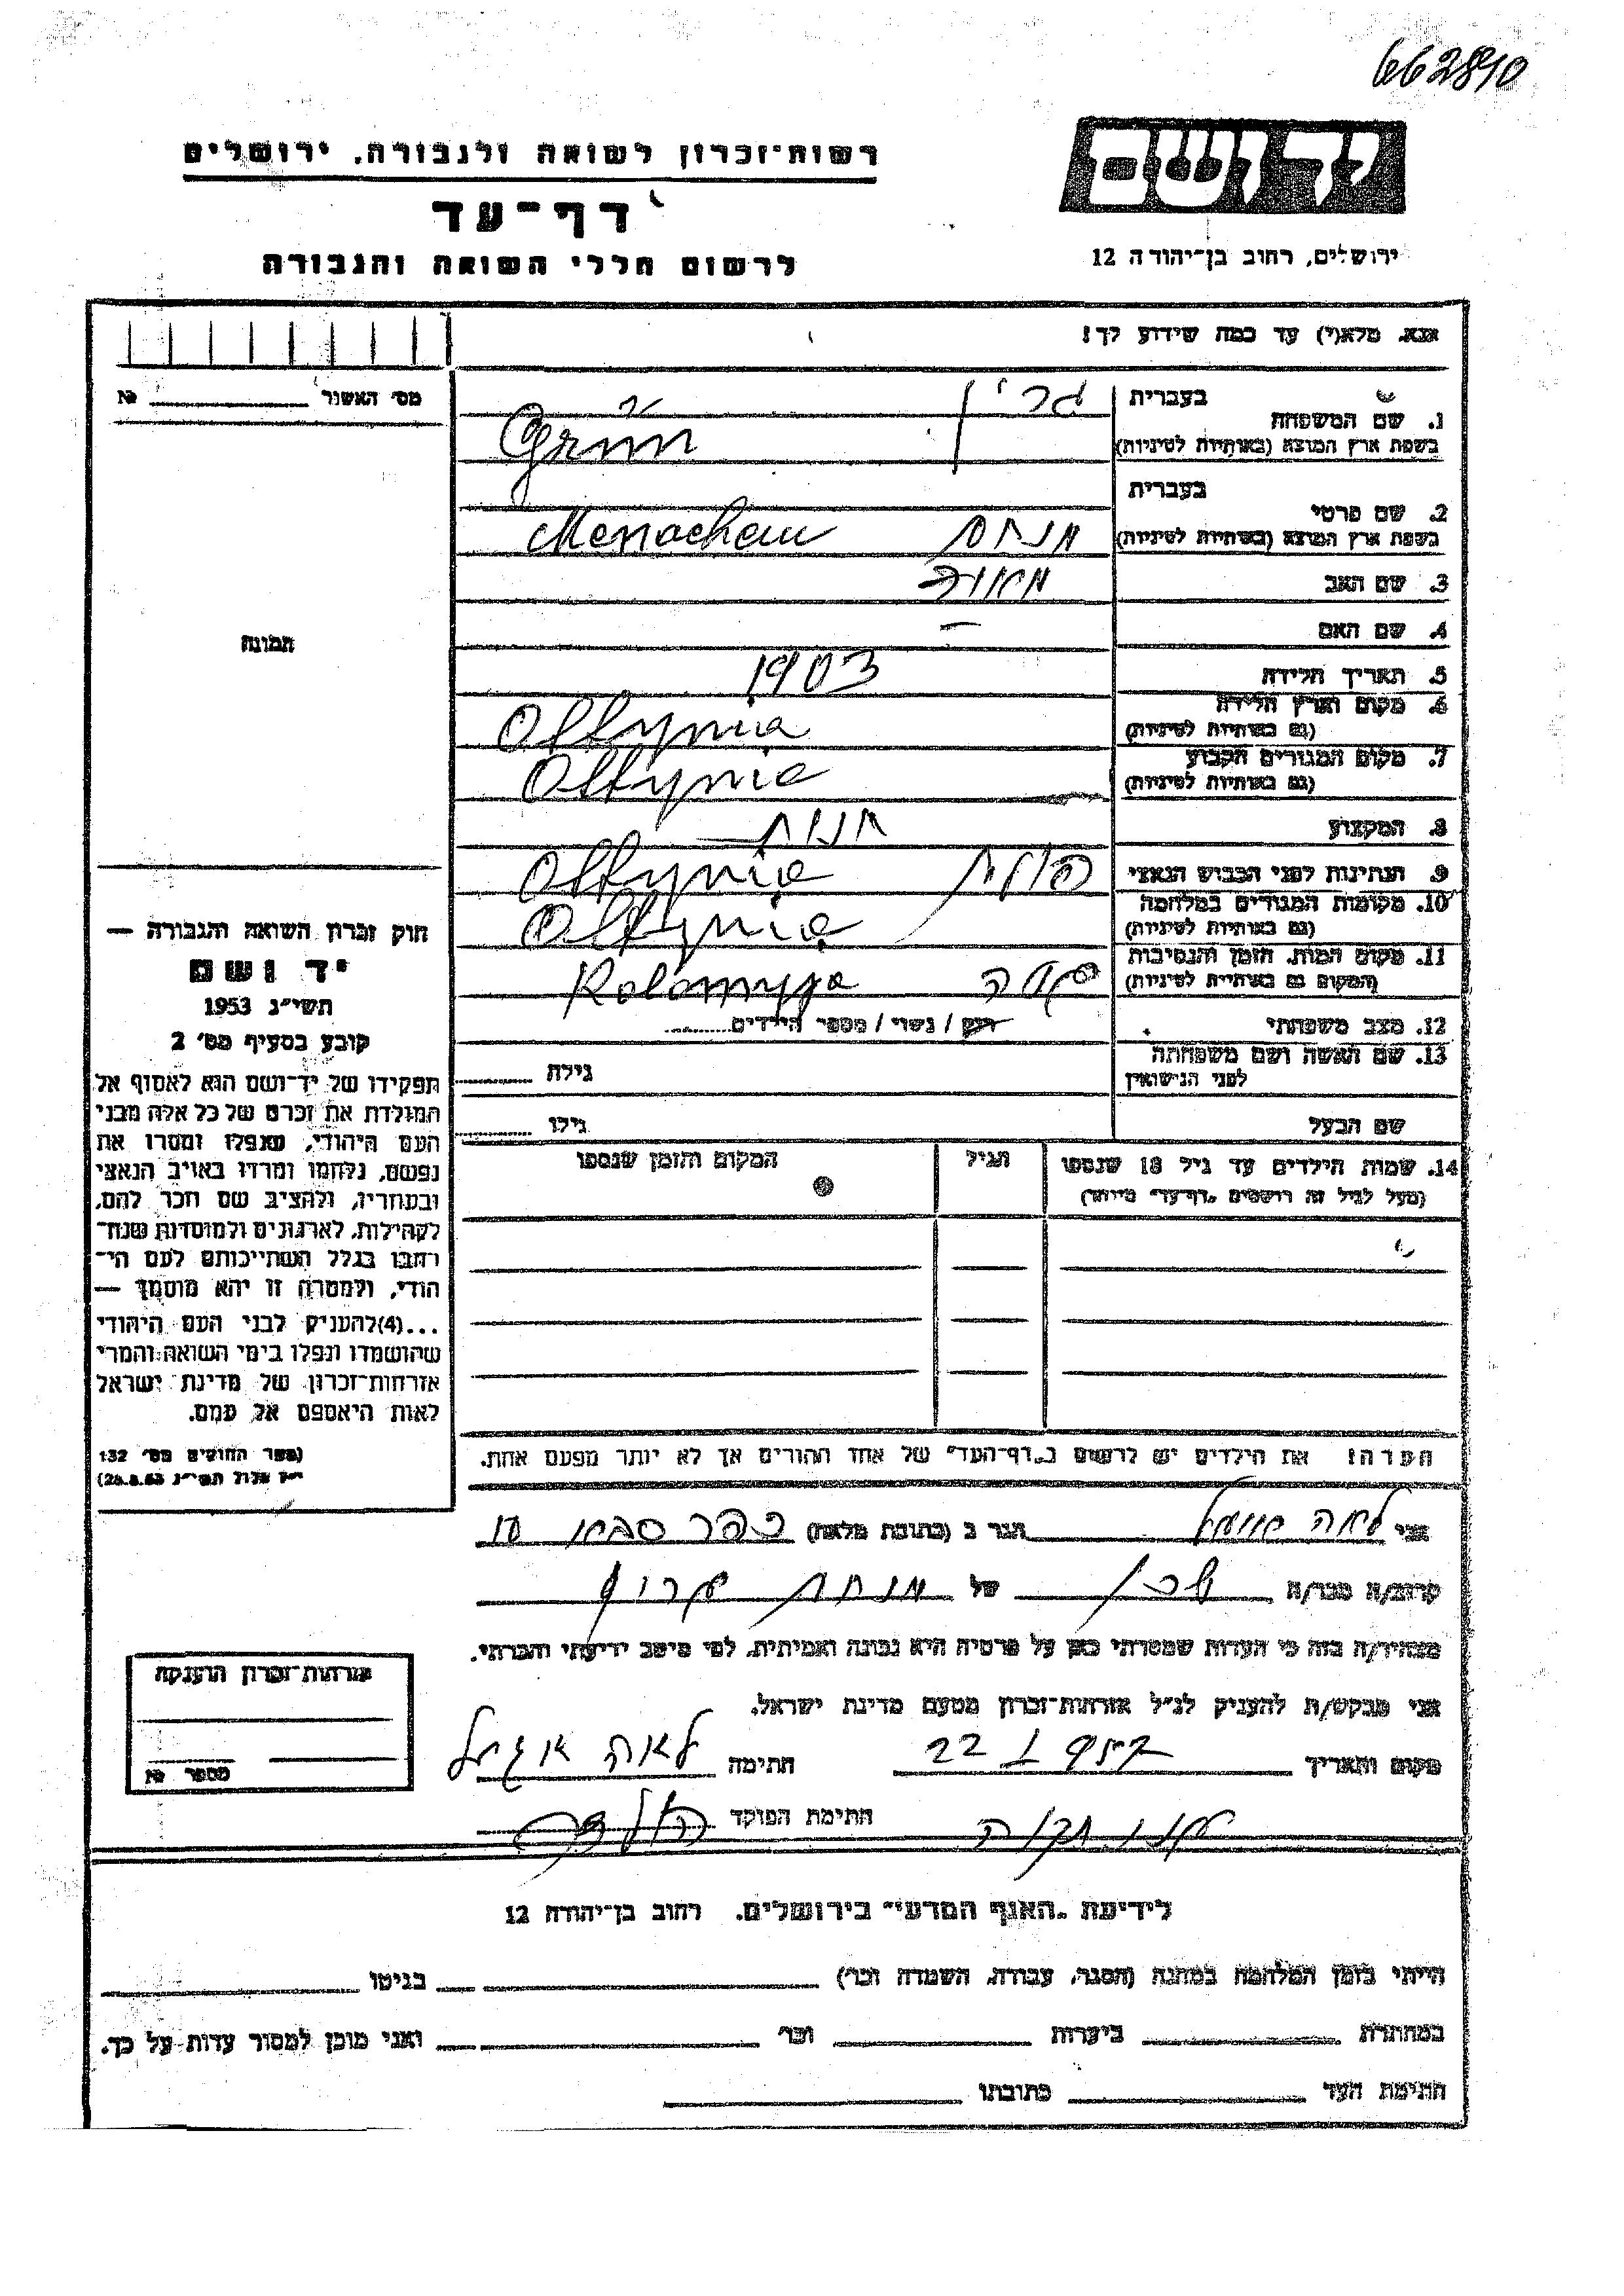 662890
יד ושם
רשות־זכרון לשואה ולגבורה, ירושלים
דף־עד
ירושלים, רחוב בן־יהודה 12
לרשום חללי השואה והגבורה
אנא, מלא(י) עד כמה שידוע לך!
מס׳ האשור № 
בעברית
1. שם המשפחה
בשפת ארץ המוצא (באותיות לטיניות)
גרין
Grün
בעברית
2. שם פרטי
בשפת ארץ המוצא (באותיות לטיניות)
מנחם Menachem
3. שם האב
4. שם האם –
5. תאריך הלידה 1903
6. מקום וארץ הלידה
(גם באותיות לטיניות) Ottynia
7. מקום המגורים הקבוע
(גם באותיות לטיניות) Ottynia
8. המקצוע
9. הנתינות לפני הכבוש הנאצי Ottynia
10. מקומות המגורים במלחמה
(גם באותיות לטיניות) Ottynia
11. מקום המות, הזמן והנסיבות
(המקום גם באותיות לטיניות) Kolomyja
12. מצב משפחתי רווק / נשוי / מספר הילדים
13. שם האשה ושם משפחתה
לפני הנישואין גילה
שם הבעל גילו
14. שמות הילדים עד גיל 18 שנספו הגיל המקום והזמן שנספו
(מעל לגיל זה רושמים „דף־עד” מיוחד)
תמונה
חוק זכרון השואה והגבורה —
יד ושם
תשי״ג 1953
קובע בסעיף מס׳ 2
תפקידו של יד־ושם הוא לאסוף אל
המולדת את זכרם של כל אלה מבני
העם היהודי, שנפלו ומסרו את
נפשם, נלחמו ומרדו באויב הנאצי
ובעוזריו, ולהציב שם וזכר להם,
לקהילות, לארגונים ולמוסדות שנח־
רבו בגלל השתייכותם לעם הי־
הודי, ולמטרה זו יהא מוסמך —
...(4)להעניק לבני העם היהודי
שהושמדו ונפלו בימי השואה והמרי
אזרחות־זכרון של מדינת ישראל
לאות היאספם אל עמם.
(ספר החוקים מס׳ 132
י״ז אלול תשי״ג 28.8.53)
הערה! את הילדים יש לרשום ב„דף־העד” של אחד ההורים אך לא יותר מפעם אחת.
אני לאה הגר ב (כתובת מלאה) כפר סבא
קרוב/ה מכר/ה שכן של
מצהיר/ה בזה כי העדות שמסרתי כאן על פרטיה היא נכונה ואמיתית, לפי מיטב ידיעתי והכרתי.
אני מבקש/ת להעניק לנ״ל אזרחות־זכרון מטעם מדינת ישראל.
מקום ותאריך 22 חתימה לאה
חתימת הפוקד
אזרחות־זכרון הוענקה
מספר №
לידיעת „האגף המדעי” בירושלים, רחוב בן־יהודה 12
הייתי בזמן המלחמה במחנה (הסגר, עבודה, השמדה וכו׳) בגיטו
במחתרת ביערות וכו׳ ואני מוכן למסור עדות על כך.
חתימת העד כתובתו